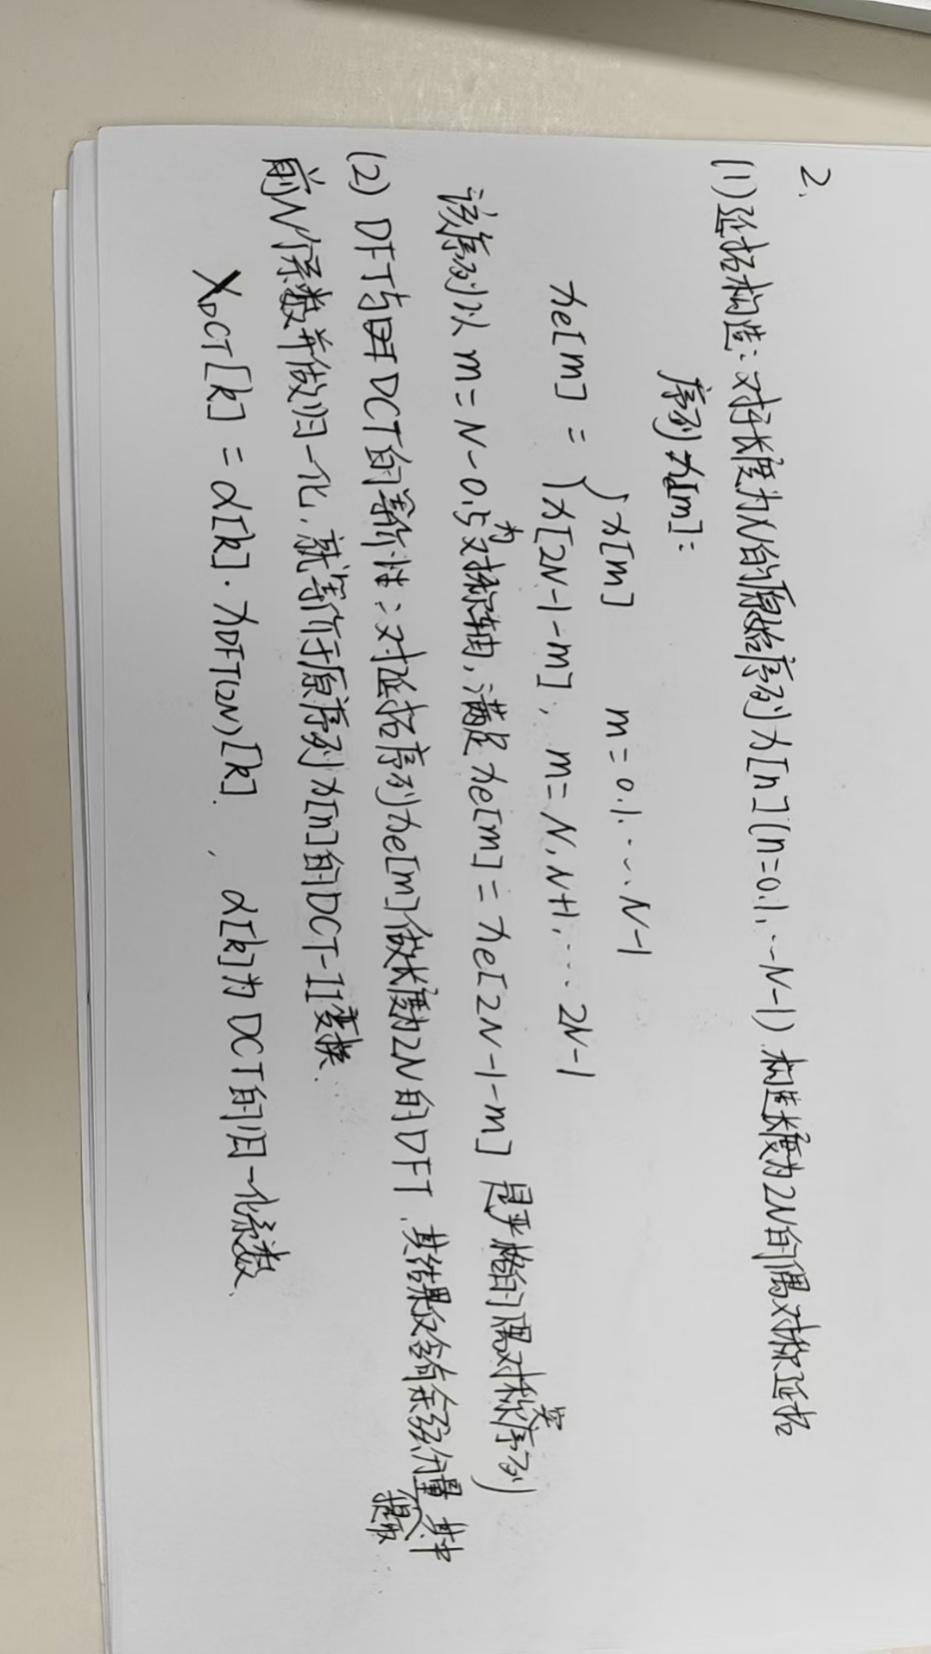 2.
(1)延拓构造：对于长度为N的原始序列x[n](n=0.1.…N-1)构造长度为2N的偶对称延拓
序列x[m]：
xe[m] = { x[m] m=0.1.…N-1
x[2N-1-m], m=N,N+1,…2N-1
该序列以m=N-0.5为对称轴，满足xe[m]=xe[2N-1-m] 是严格的偶对称实序列
(2) DFT与DCT的等价性：对延拓序列xe[m]做长度为2N的DFT，其结果仅含有余弦分量 其中提取
前N个系数并做归一化，就等价于原序列x[n]的DCT-II变换.
XDCT[k] = α[k]·XDFT(2N)[k]. , α[k]为DCT的归一化系数.